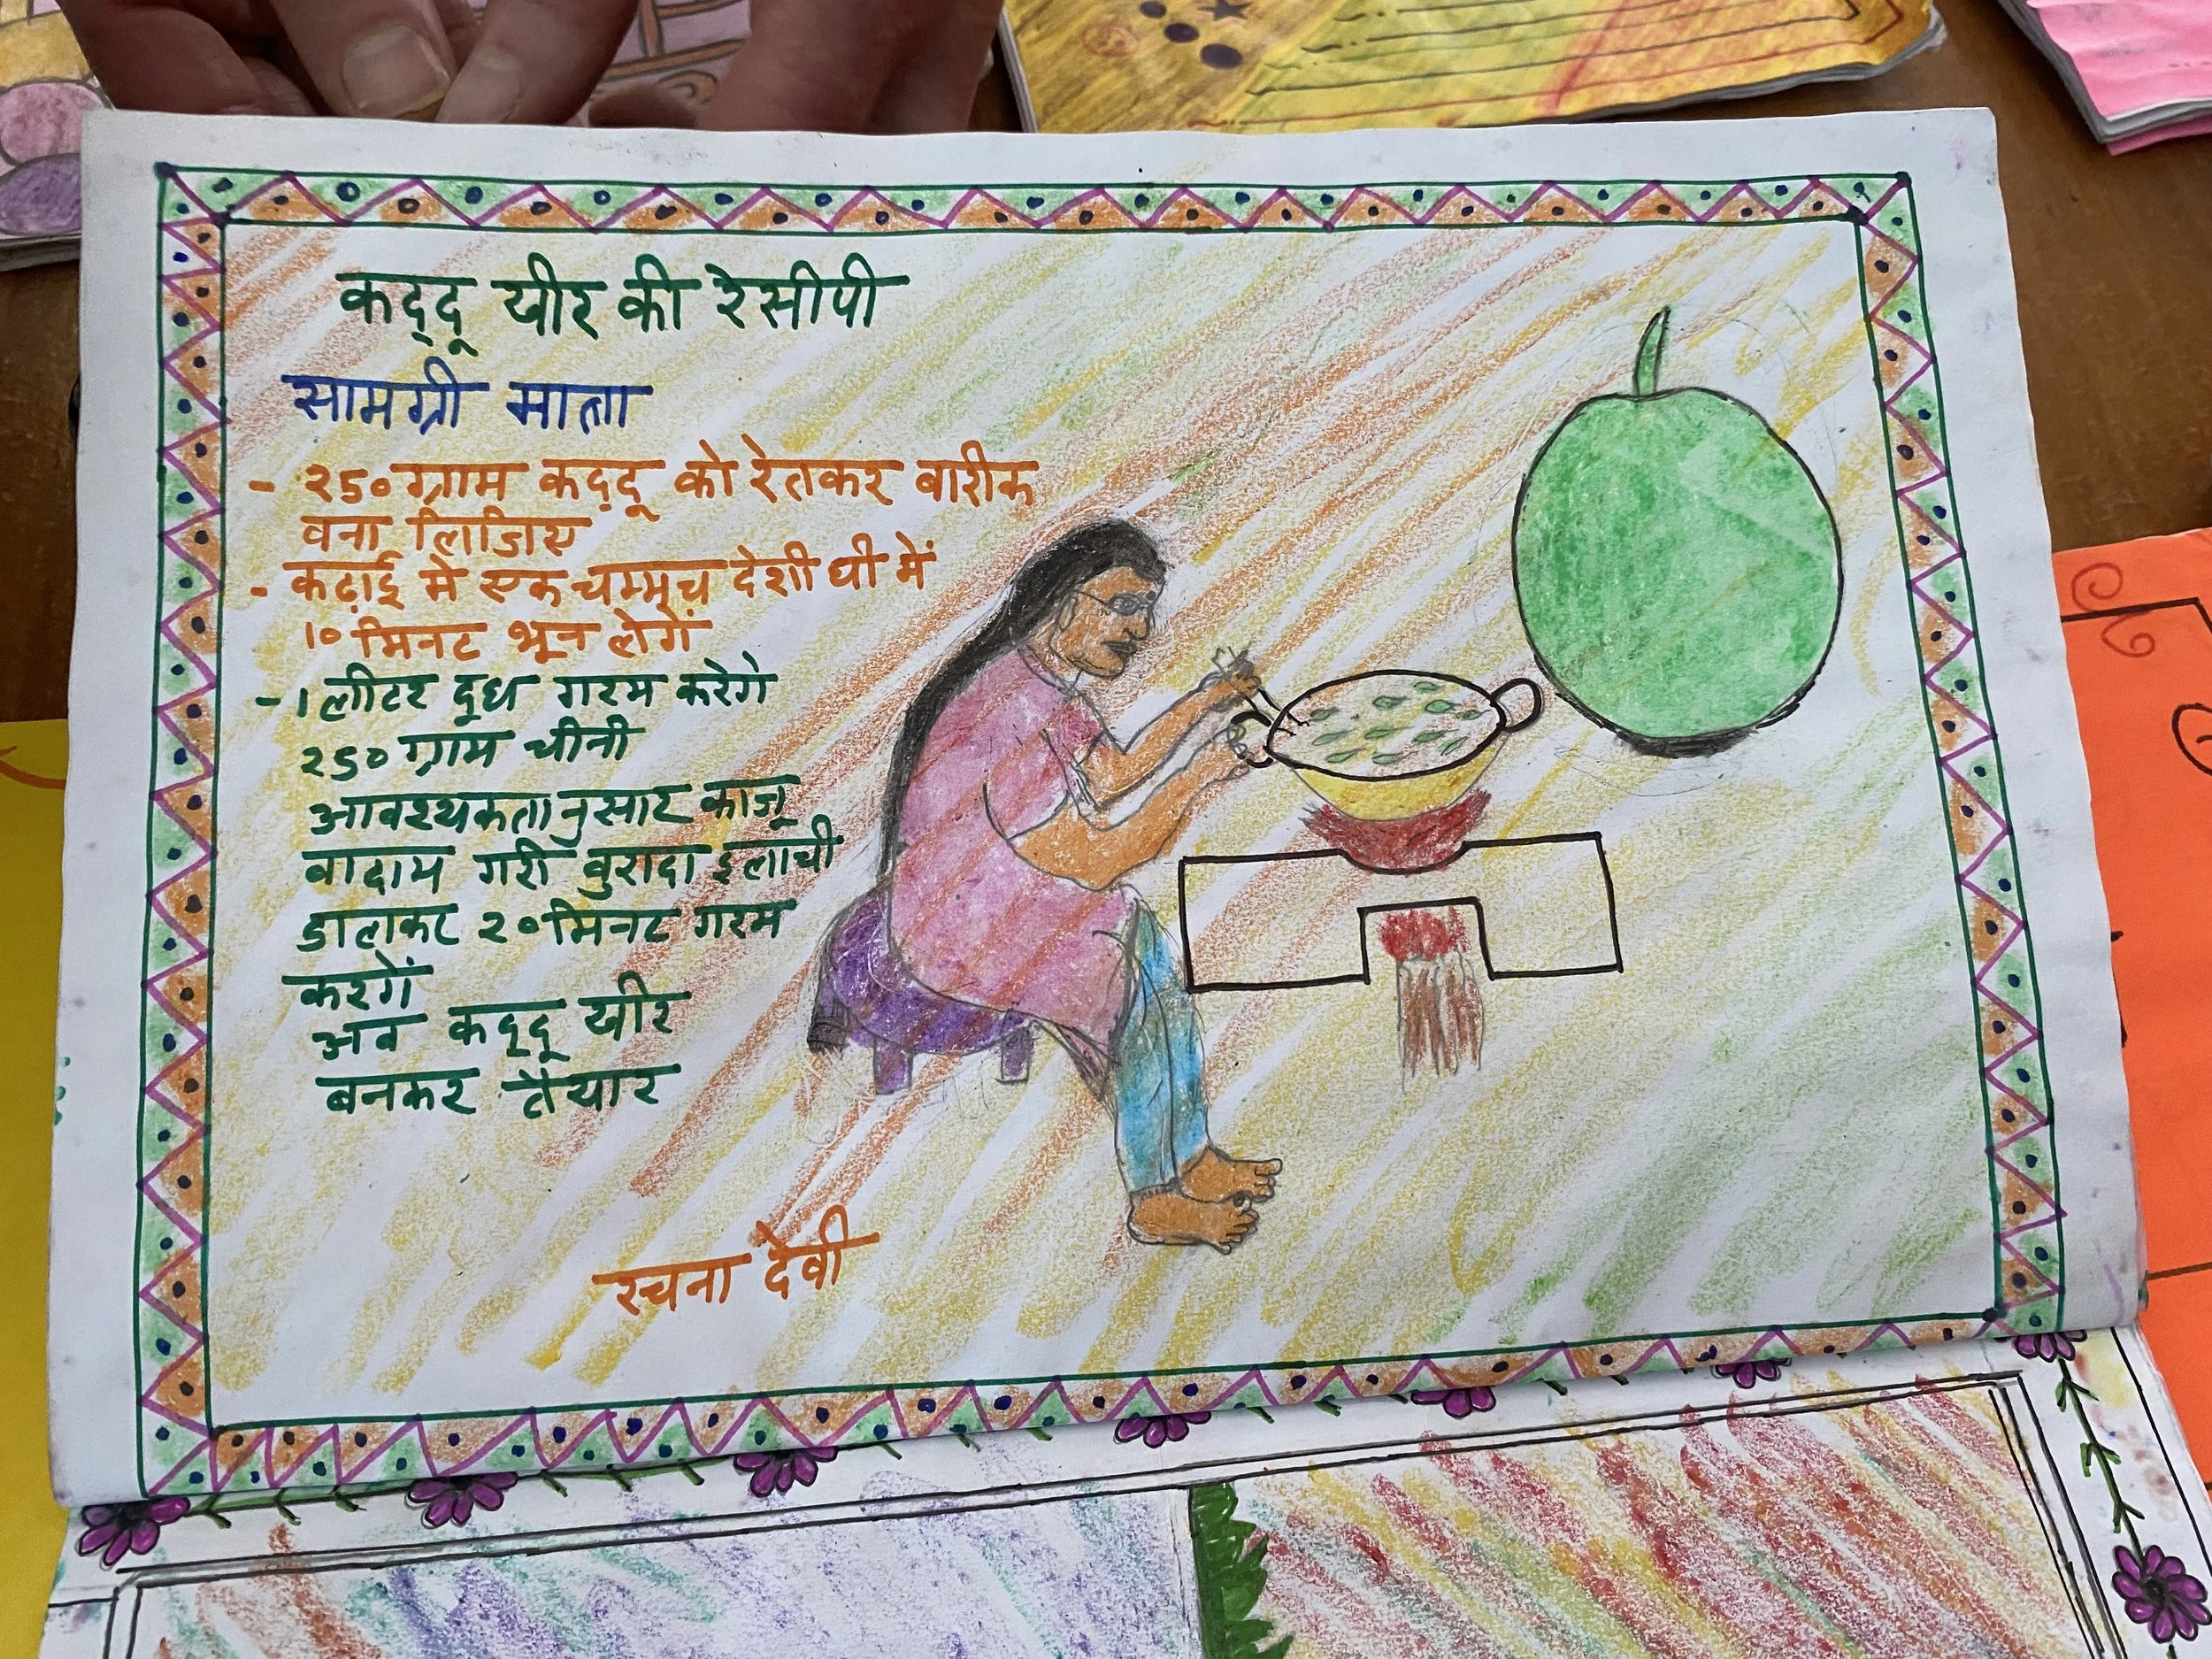 कद्दू खीर की रेसीपी
सामग्री मात्रा
- २5० ग्राम कद्दू को रेतकर बारीक
वना लिजिए
- कढ़ाई मे एक चम्मच देशी घी में
10 मिनट भून लेगें
- 1 लीटर दूध गरम करेगे
२5० ग्राम चीनी
आवश्यकतानुसार काजू
वादाम गरी वुरादा इलाची
डालकर २० मिनट गरम
करगें
अव कद्दू खीर
बनकर तैयार
रचना देवी